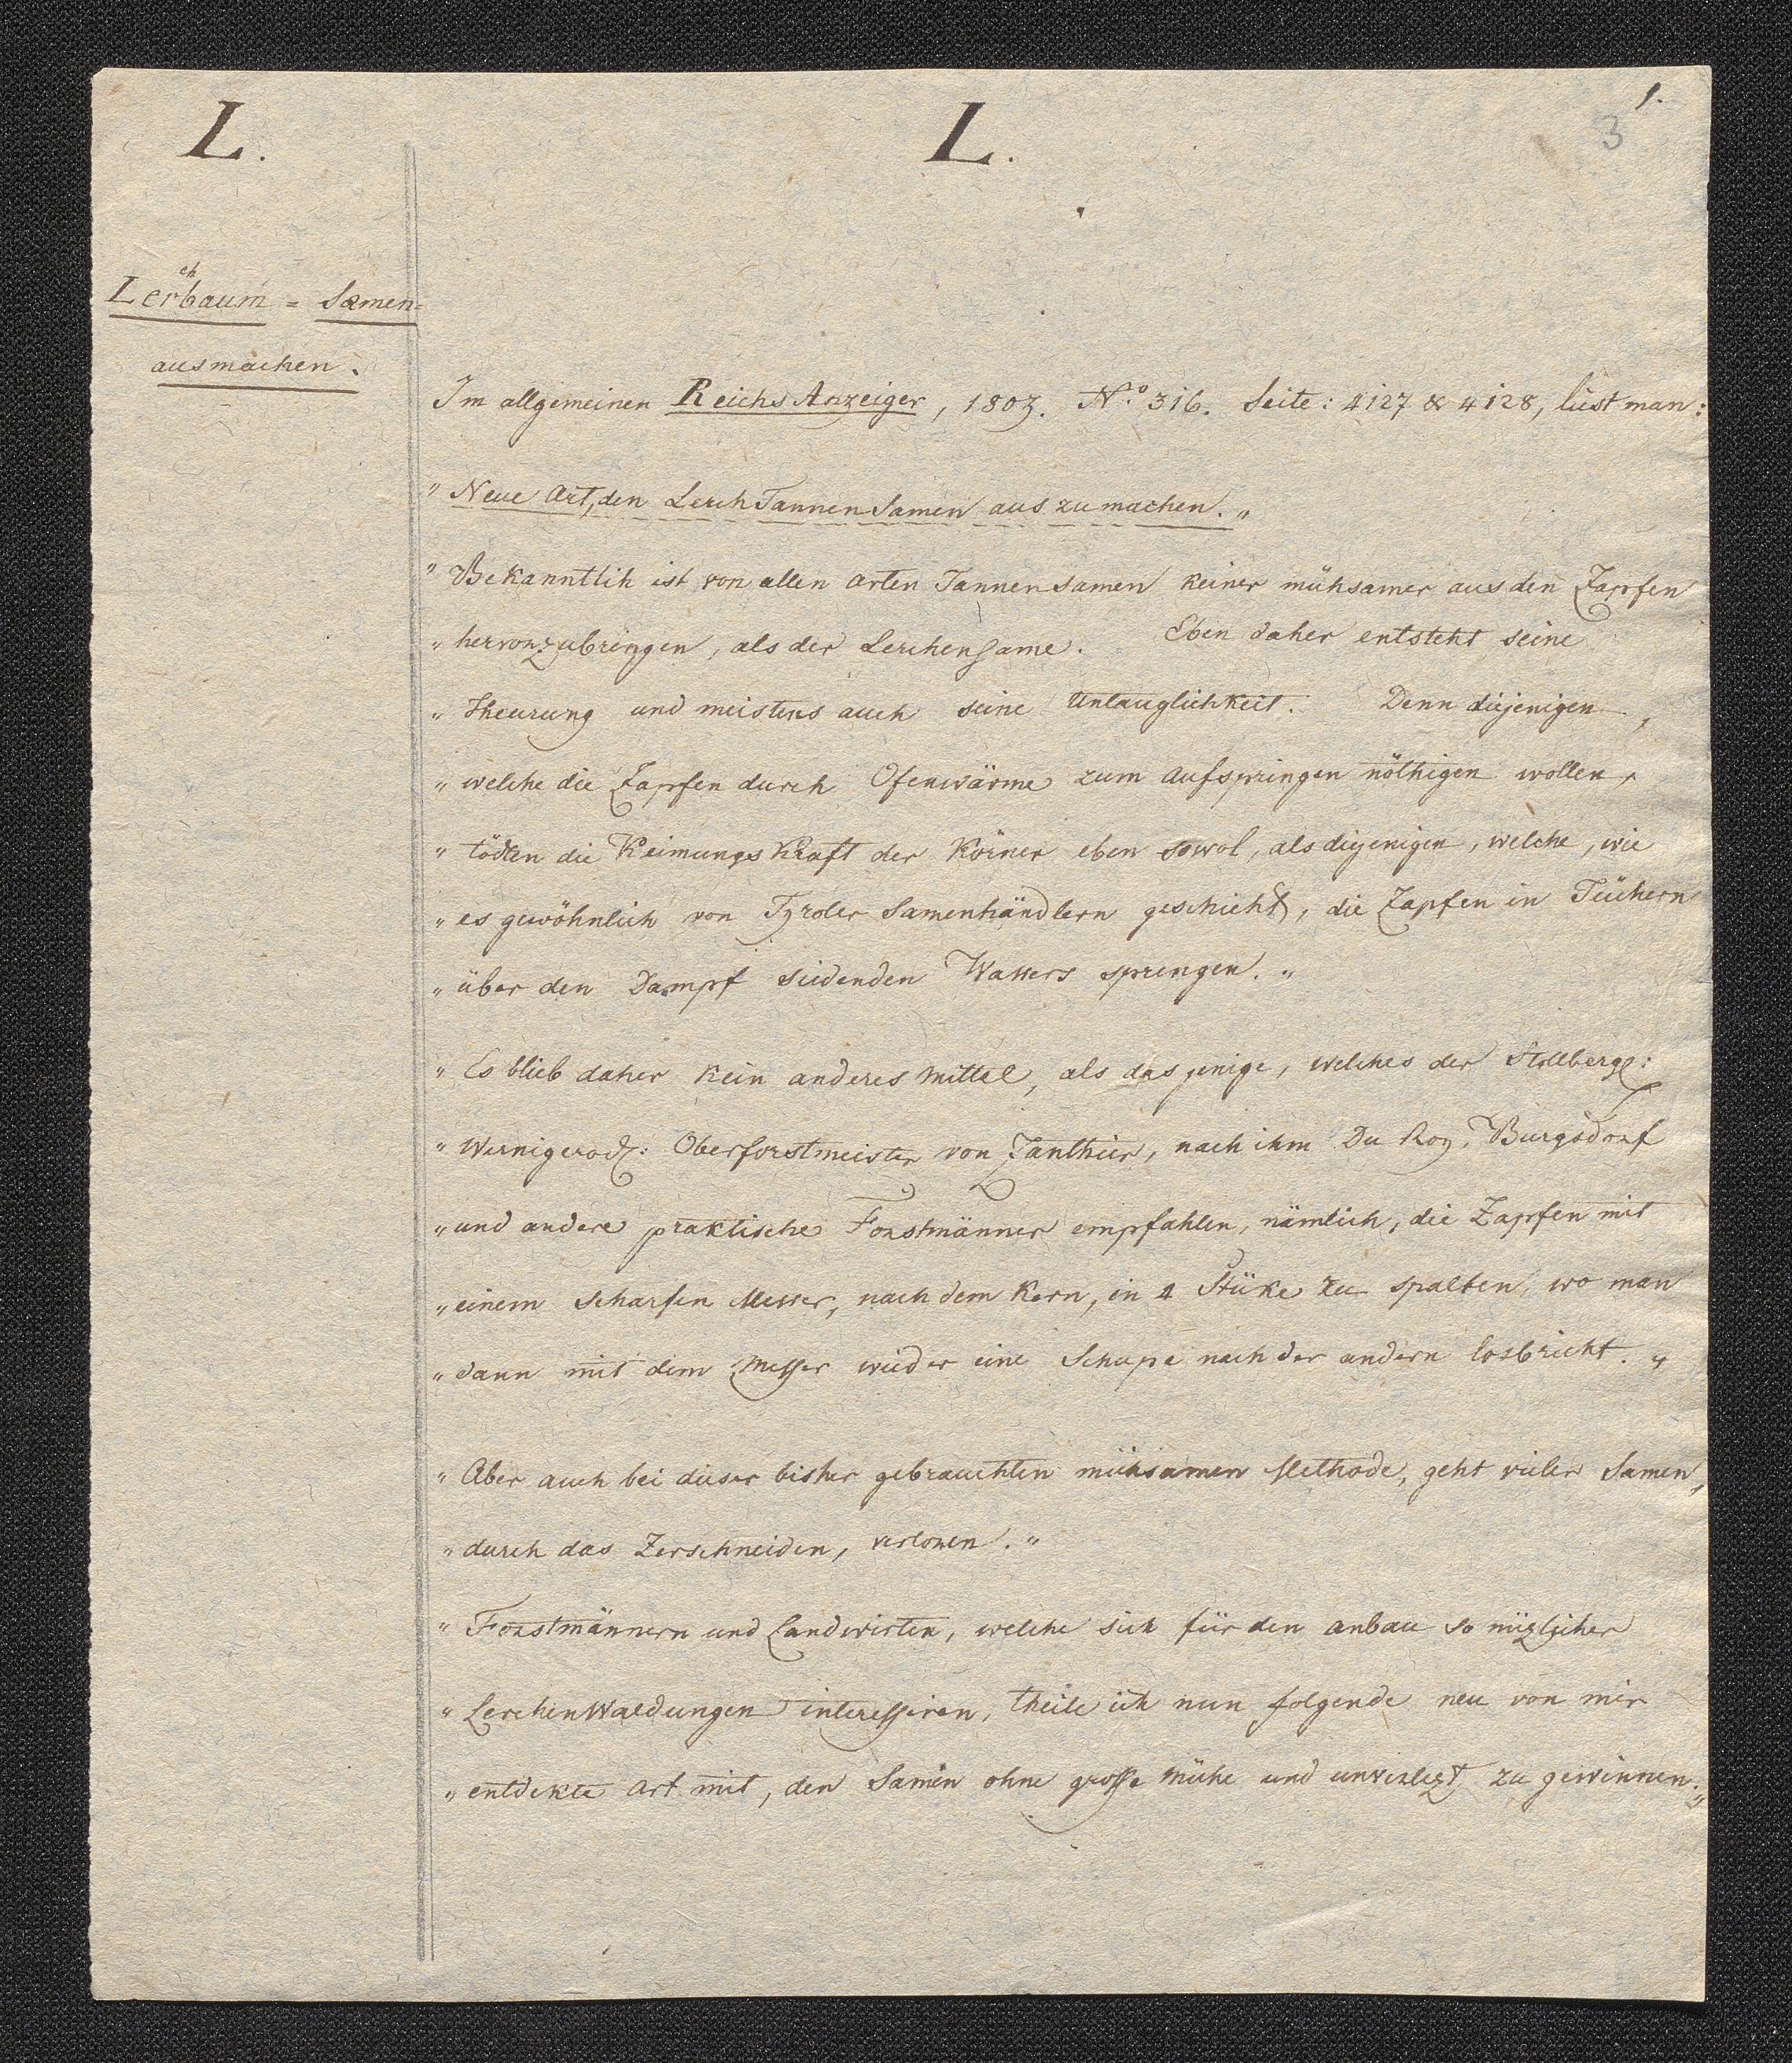 L.
L.
1.
3
Lerchbaum = Samen=
ausmachen.
Im allgemeinen Reichs Anzeiger, 1803. N.o 316. Seite: 4127 & 4128, liest man:
„ Neue Art, den Lerch Tannen Samen aus zu machen. „
„ Bekanntlih ist von allen Arten Tannen samen keiner mühsamer aus den Zapfen
„ hervorzubringen, als der Lerchensame. Eben daher entsteht seine
„ Theurung und meistens auch seine Untauglichkeit. Denn diejenigen,
„ welche die Zapfen durch Ofenwärme zum Aufspringen nöthigen wollen,
„ tödten die Keimungs Kraft der Körner eben sowol, als diejenigen, welche, wie
„ es gewöhnlich von Tyroler Samenhändlern geschieht, die Zapfen in Tüchern
„ über den Dampf siedenden Wassers sprengen. „
„ Es blieb daher kein anderes Mittel, als dasjenige, welches der Stollberg:
„ Wernigerod: Oberforstmeister von Zanthier, nach ihm Du Roy, Burgsdorf
„ und andere praktische Forstmänner empfahlen, nämlich, die Zapfen mit
„ einem scharfen Messer, nach dem Kern, in 4 Stüke zu spalten, wo man
„ dann mit dem Messer wieder eine Schupe nach der andern losbricht. „
„ Aber auch bei dieser bisher gebrauchten mühsamen Methode, geht vieler Samen,
„ durch das Zerschneiden, verloren. „
„ Forstmännern und Landwirten, welche sich für den Anbau so nüzlicher
„ Lerchen Waldungen interessiren, theile ich nun folgende neu von mir
„ entdekte Art mit, den Samen ohne grosse Mühe und unverlezt zu gewinnen: „